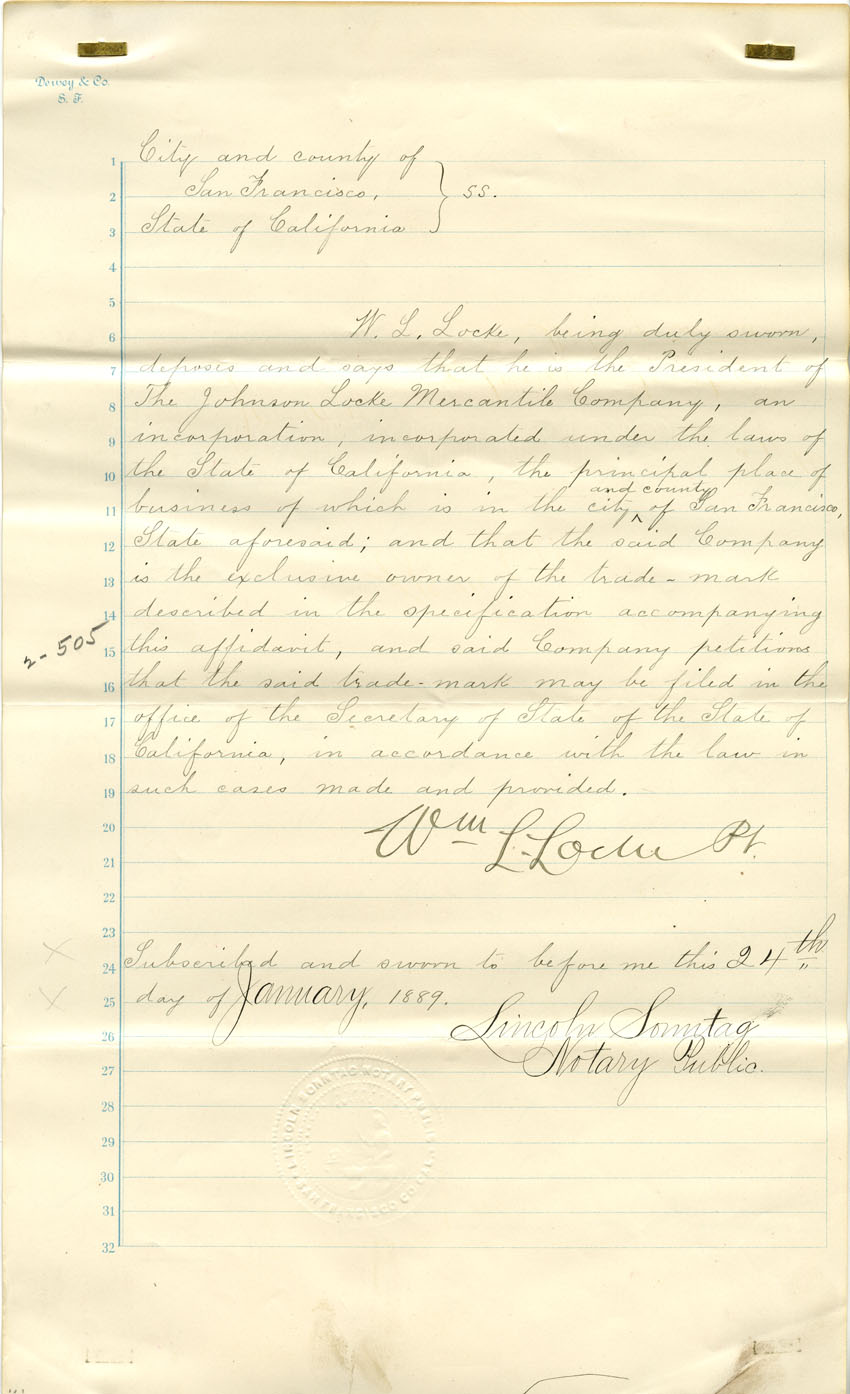 Dewey & Co.
S. F.
1 City and county of
2 San Francisco, } ss.
3 State of California
4
5
6 W. L. Locke, being duly sworn,
7 deposes and says that he is the President of
8 The Johnson Locke Mercantile Company, an
9 incorporation, incorporated under the laws of
10 the State of California, the principal place of
and county
11 business of which is in the city ^ of San Francisco,
12 State aforesaid; and that the said Company
13 is the exclusive owner of the trade-mark
14 described in the specification accompanying
2-505
15 this affidavit, and said Company petitions
16 that the said trade-mark may be filed in the
17 office of the Secretary of State of the State of
18 California, in accordance with the law in
19 such cases made and provided.
20 Wm L. Locke Pt.
21
22
23
24 Subscribed and sworn to before me this 24th
25 day of January, 1889.
26 Lincoln Sonntag
27 Notary Public.
28
29 LINCOLN SONNTAG NOTARY PUBLIC
30 SAN FRANCISCO CO. CAL.
31
32